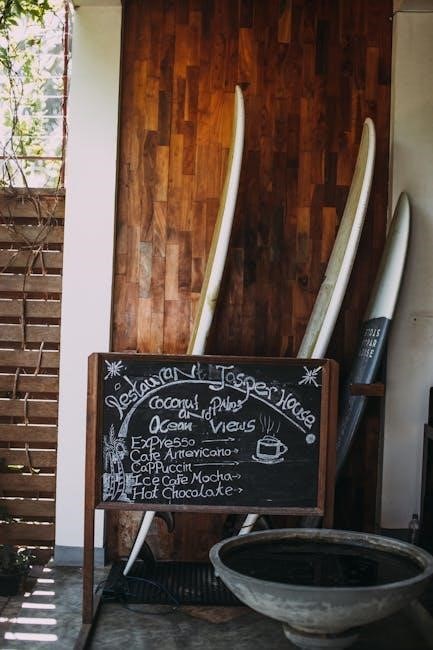 Restaurant Jasper House
Coconut Palms
and
Ocean Views
ExPresso
Cafe Americano
CaPPuccin
Ice Cafe Mocha
Hot Chocolate